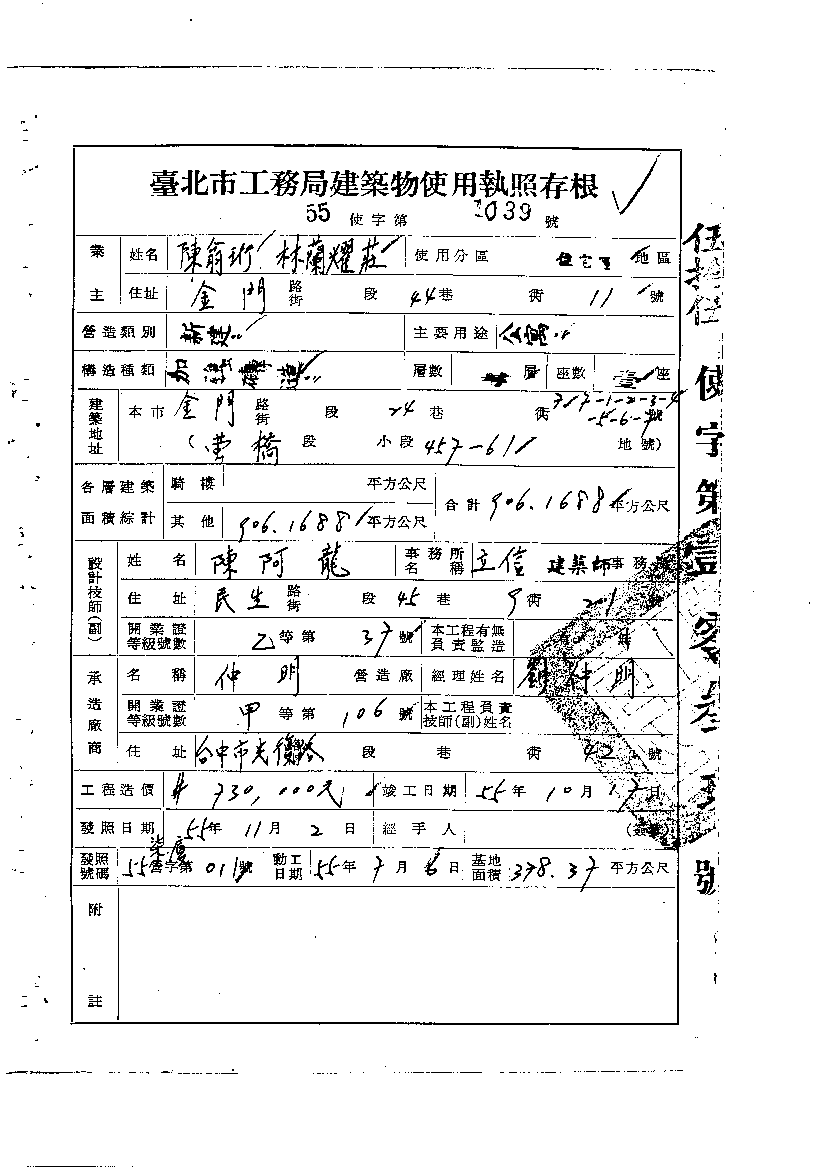 臺北市工務局建築物使用執照存根
55 使字第 1039 號
業主 姓名 陳翁珩 林蘭耀莊 使用分區 住宅區 地區
住址 金門 路街 段 44巷 衖 11 號
營造類別 新建 主要用途 公寓
構造種類 加強磚造 層數 層 座數 壹 座
建築地址 本市 金門 路街 段 24 巷 衖
-5-6-
段 小段 457-61 地號)
各層建築面積綜計 騎樓 平方公尺 合計 906.1688 平方公尺
其他 906.1688 平方公尺
設計技師(副) 姓名 陳阿龍 事務所名稱 立信 建築師事務所
住址 民生 路街 段 45 巷 9 衖 號
開業證等級號數 乙 等第 37 號 本工程有無負責監造
承造廠商 名稱 仲明 營造廠 經理姓名 劉仲明
開業證等級號數 甲 等第 106 號 本工程員責技師(副)姓名
住址 台中市光復路 段 巷 衖 42 號
工程造價 # 730,000元 竣工日期 55年 10月 17日
發照日期 55年 11月 2日 經手人
發照號碼 55 營字第 011 號 動工日期 55年 7月 6日 基地面積 378.37 平方公尺
附註
伍拾伍使字第壹零叁玖號